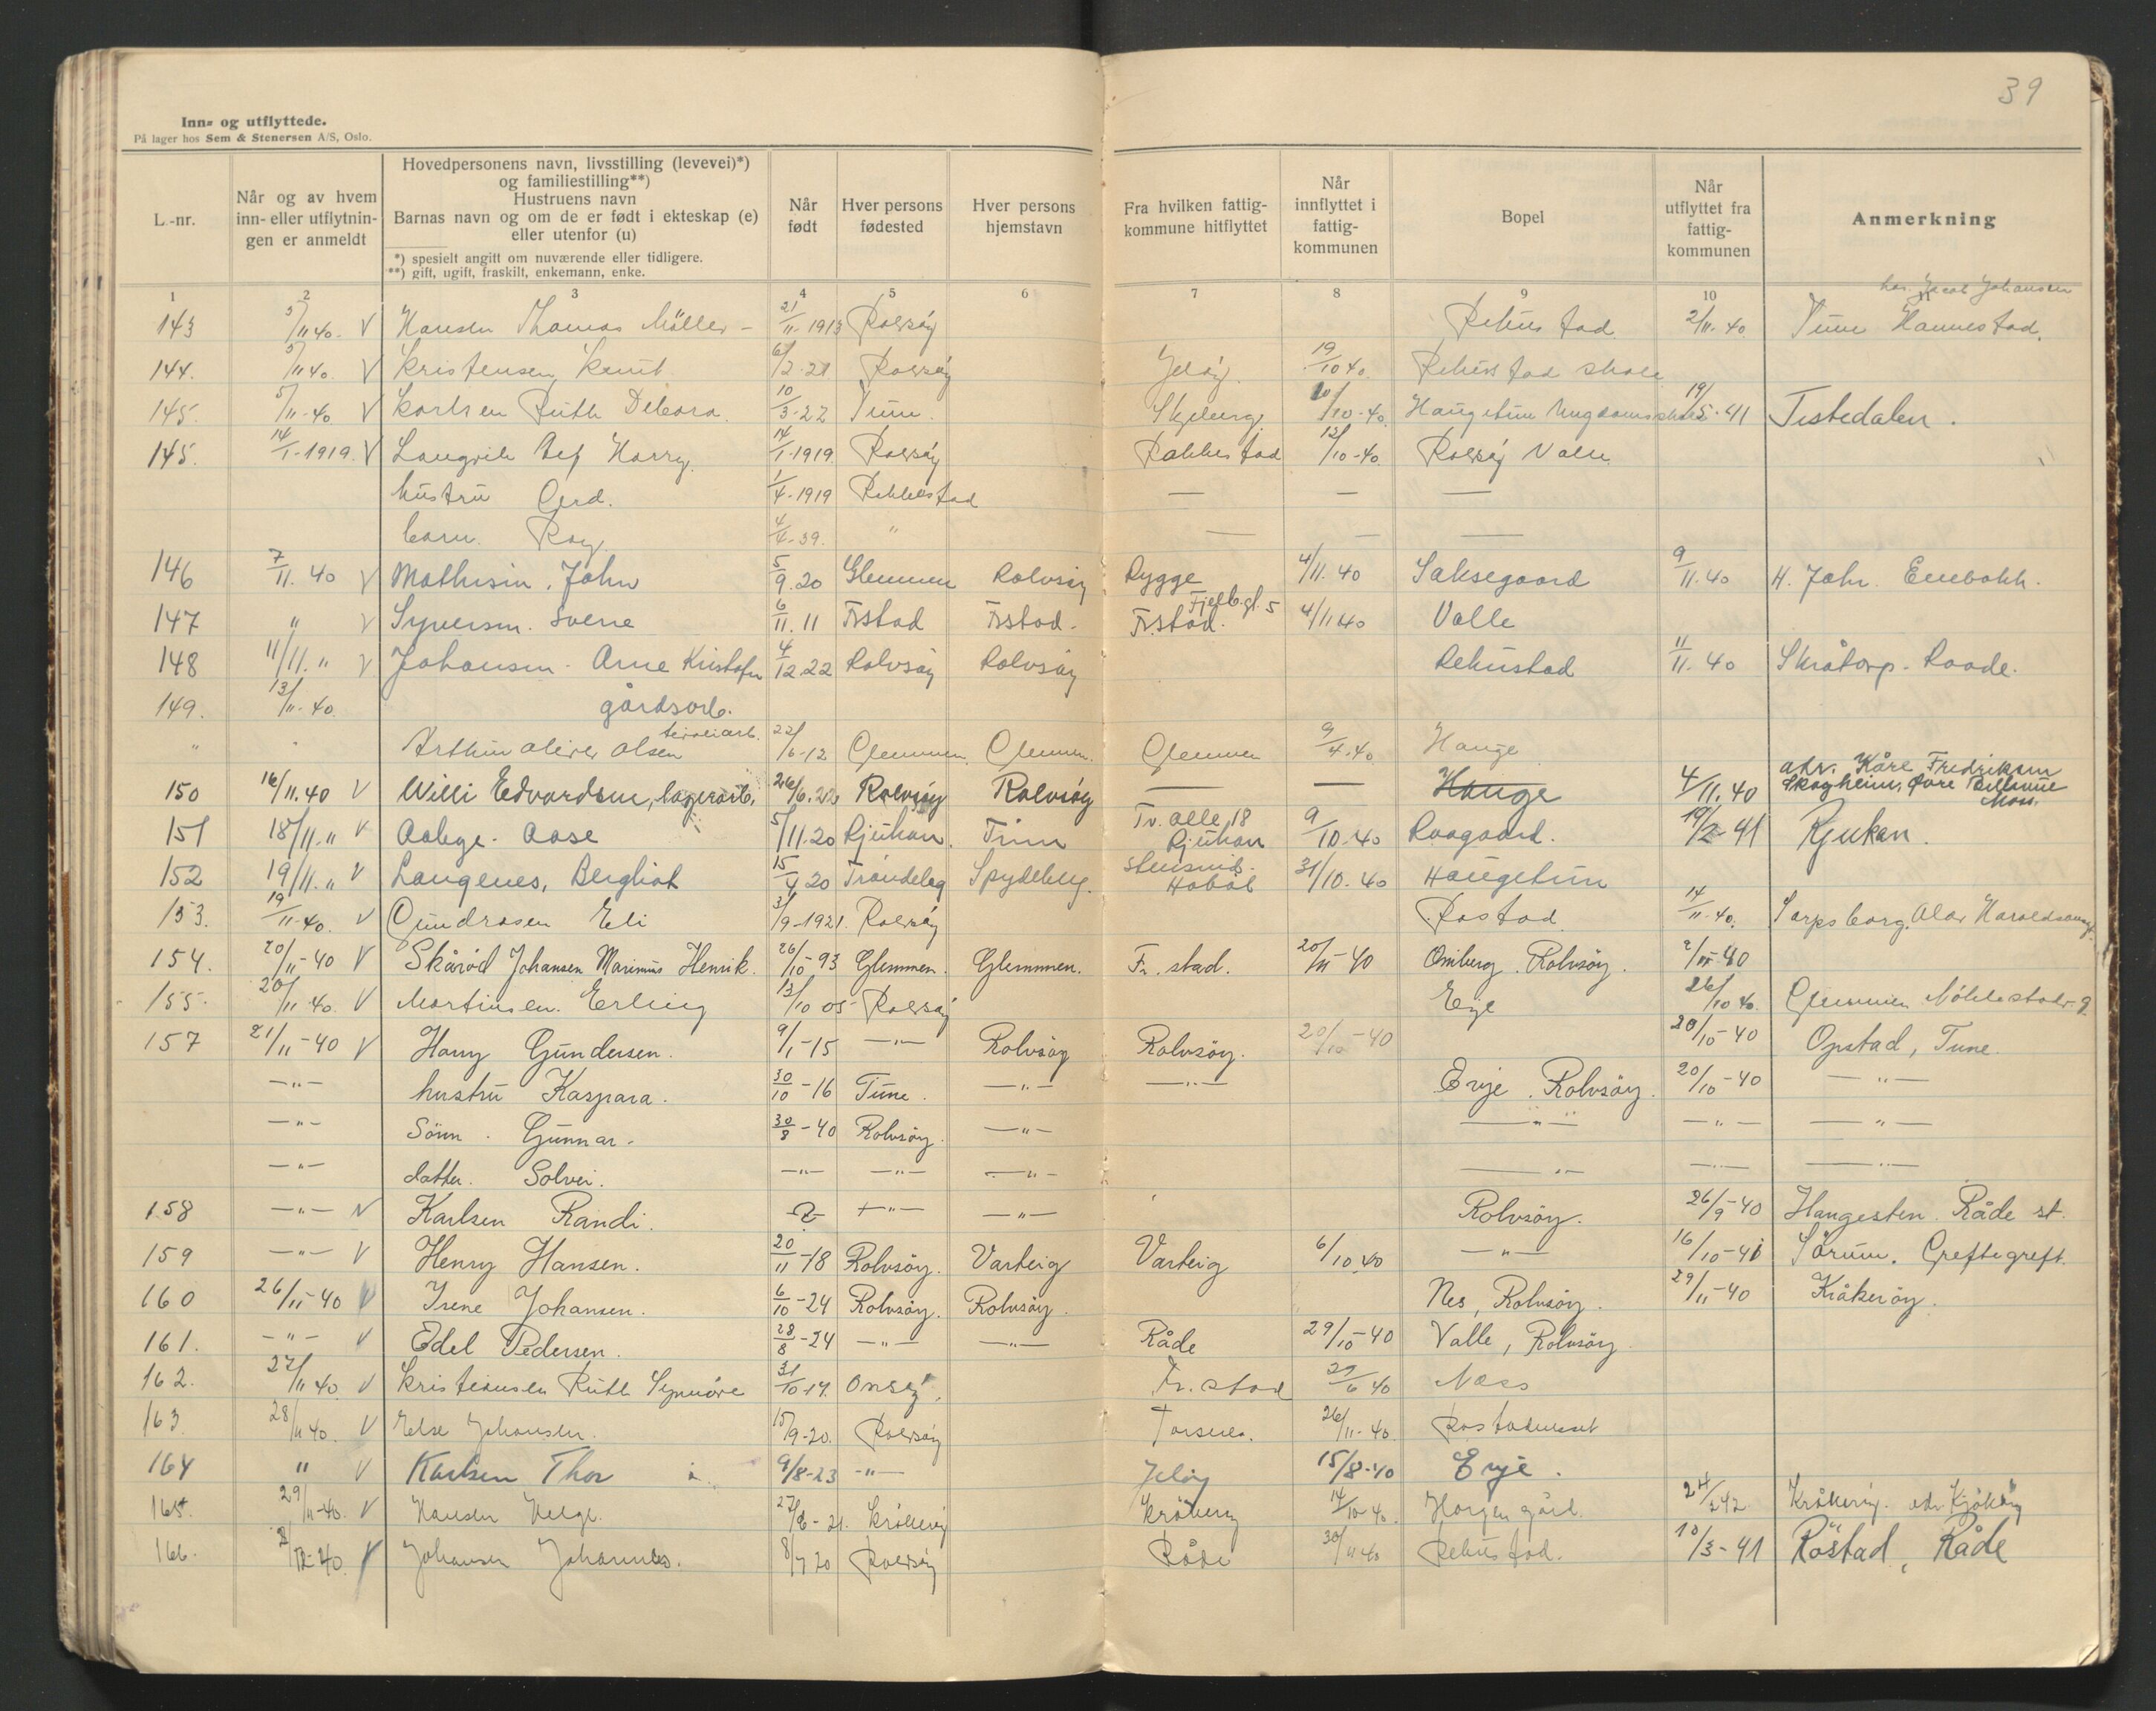 39
Inn- og utflyttede.
På lager hos Sem & Stenersen A/S, Oslo.
L.-nr. Når og av hvem inn- eller utflytningen er anmeldt Hovedpersonens navn, livsstilling (levevei)*) og familiestilling**) Hustruens navn Barnas navn og om de er født i ekteskap (e) eller utenfor (u) *) spesielt angitt om nuværende eller tidligere. **) gift, ugift, fraskilt, enkemann, enke. Når født Hver persons fødested Hver persons hjemstavn Fra hvilken fattigkommune hitflyttet Når innflyttet i fattigkommunen Bopel Når utflyttet fra fattigkommunen Anmerkning
1 2 3 4 5 6 7 8 9 10
hos Jacob Johansen
143 5/11 40. V Hansen Thomas Möller - 21/11-1913 Rolvsöy 2/11. 40 Tune Hannestad.
144. 5/11 40. V Kristensen Knut 6/2-21 Rolvsöy Jelöy. 19/10 40.
145. 5/11-40 V Karlsen Ruth Debora 10/3-22 Tune. Skjeberg. 10/10-40. Haugetun Ungdomsskole 19/5-41 Tistedalen.
145. 14/1-1919. V Langvik Alf Harry. 14/1-1919. Rolvsöy Rakkestad 12/10-40. Rolvsöy Valle
hustru Gerd. 1/4-1919 Rakkestad — — —
barn. Roy 4/4-39. " — — —
146 7/11. 40 V Mathisen, John 5/9.20 Glemmen Rolvsöy Rygge 4/11. 40 Saksegaard 9/11.40 H. Jahr. Enebakk.
Fjeldg. 5
147 " V Syversen. Sverre 6/11. 11 Fr.stad Fr.stad. Fr.stad. 4/11.40 Valle
148 11/11. " V Johansen - Arne Kristofer 4/12.22 Rolvsöy Rolvsöy Rekustad 11/11. 40 Skråtorp - Raade.
149. 13/11-40. gårdsarb.
" Arthur Oliver Olsen 22/6-12 Glemmen. Glemmen. Glemmen 9/4.40. Hauge
adr. Kåre Fredriksen
150 16/11.40 V Willi Edvardsen, lagerarb. 26/6.22 Rolvsöy Rolvsöy — — Hauge 4/11.40 Skogheim, övre Bellevue
Moss.
Tv. alle 18
151 18/11. " V Aabege - Aase 5/11.20 Rjukan. Tinn Rjukan 9/10-40 Raagaard. 19/2-41 Rjukan.
152 19/11. " V Langenes, Bergliot 15/4 20 Tröndelag Spydeberg. Hobøl 31/10.40 Haugetun
153. 19/11-40. V Gundrosen Eli 3/9-1921. Rolvsöy Rostad 14/11-40. Sarpsborg. Olav Haraldsonsgt.
154. 20/11-40 V Skåröd Johansen Marinus Henrik. 26/10-93 Glemmen. Glemmen. Fr. stad. 20/11-40 Omberg. Rolvsöy. 2/11-40
155. 20/11 40. V Martinsen. Erling 13/10 05 Rolvsöy Evje 26/10 40. Glemmen
157 21/11-40 V Harry Gundersen. 9/1-15 —"— Rolvsöy Rolvsöy. 20/10-40 20/10-40 Opstad, Tune.
—"— hustru Kaspara. 30/10-16 Tune. —"— —"— Evje. Rolvsöy. 20/10-40 —"—
—"— Sönn. Gunnar. 30/8-40 Rolvsöy. —"— —"— —"— —"—
—"— datter. Solvei. —"— —"— —"— —"— —"— —"—
158 —"— V Karlsen Randi. ? —"— —"— Rolvsöy. 26/9-40 Haugesten. Råde st.
159 —"— V Henry Hansen. 20/11-18 Rolvsöy. Varteig Varteig 6/10.40 —"— 16/10-40 Sörum. Greftegreft.
160 26/11-40 V Irene Johansen. 6/10-24 Rolvsöy. Rolvsöy. Nes, Rolvsöy. 29/11-40 Kråkeröy.
161. —"— V Edel Pedersen. 28/8-24 —"— —"— Råde 29/10-40 Valle, Rolvsöy
162. 27/11 40. V Kristiansen Ruth Synnöve 31/10-17. Onsöy. Fr. stad 27/6 40 Næss
163. 28/11 40. V Else Johansen. 15/9-20. Rolvsöy Torsnes. 26/11-40.
164 " V Karlsen Thor 9/8-23 —"— Jelöy 15/8-40 Evje.
165. 29/11-40. V Hansen Helge. 27/6-21. Kråkeröy Kråkeröy 14/10-40. Horgen gård. 24/2 42 Kråkeröy. adr. Kjøköy
166. 2/12-40. V Johansen Johannes. 8/7 20 Rolvsöy Råde 30/11 40 Rekustad. 10/3-41 Röstad, Råde